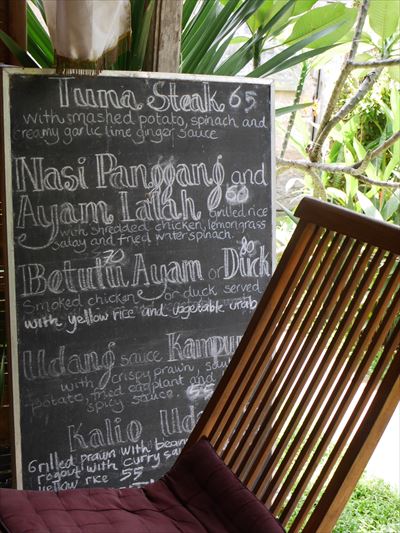 Tuna Steak 65
with smashed potato, spinach and
creamy garlic lime ginger sauce
Nasi Panggang and 66
Ayam Lalah Grilled rice
with shredded chicken, lemongrass
salay and fried water spinach.
Betutu Ayam or Duck 70 80
Smoked chicken or duck served
with yellow rice and vegetable urab
Udang sauce Kampu
with crispy prawn,
potato, fried eggplant and
spicy sauce. 55
Kalio Ud
Grilled prawn with bean
rogout with curry sa
yellow rice 55